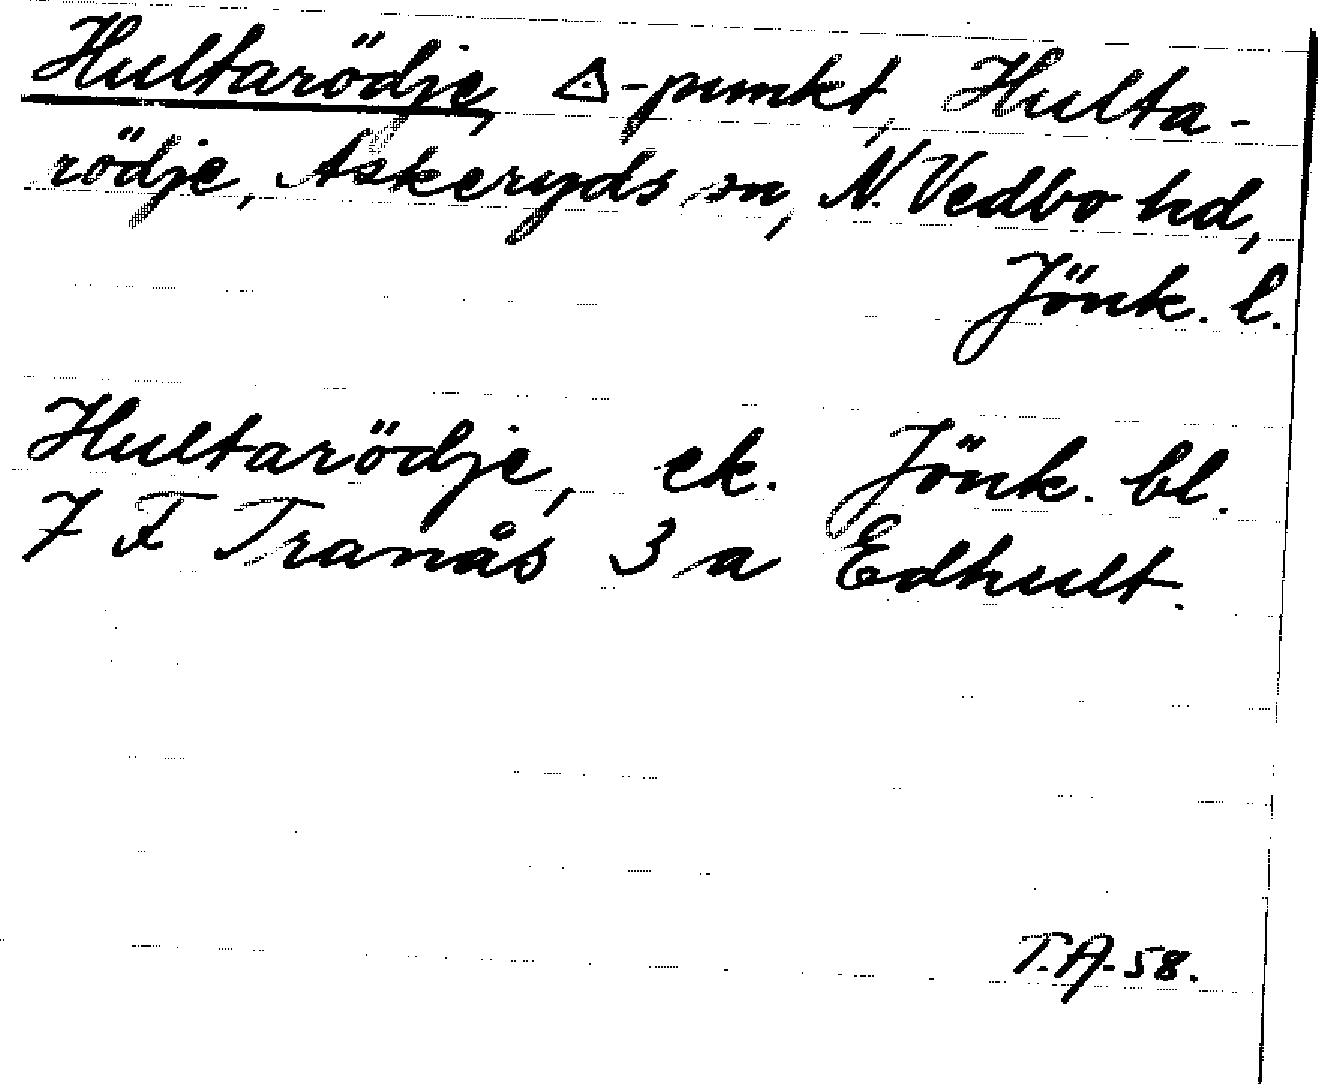 Hultarödje, △-punkt, Hulta-
rödje, Askeryds sn, N. Vedbo hd,
Jönk. l.
Hultarödje, ek. Jönk. bl.
7 F Tranås 3 a Edhult.
T.A-58.